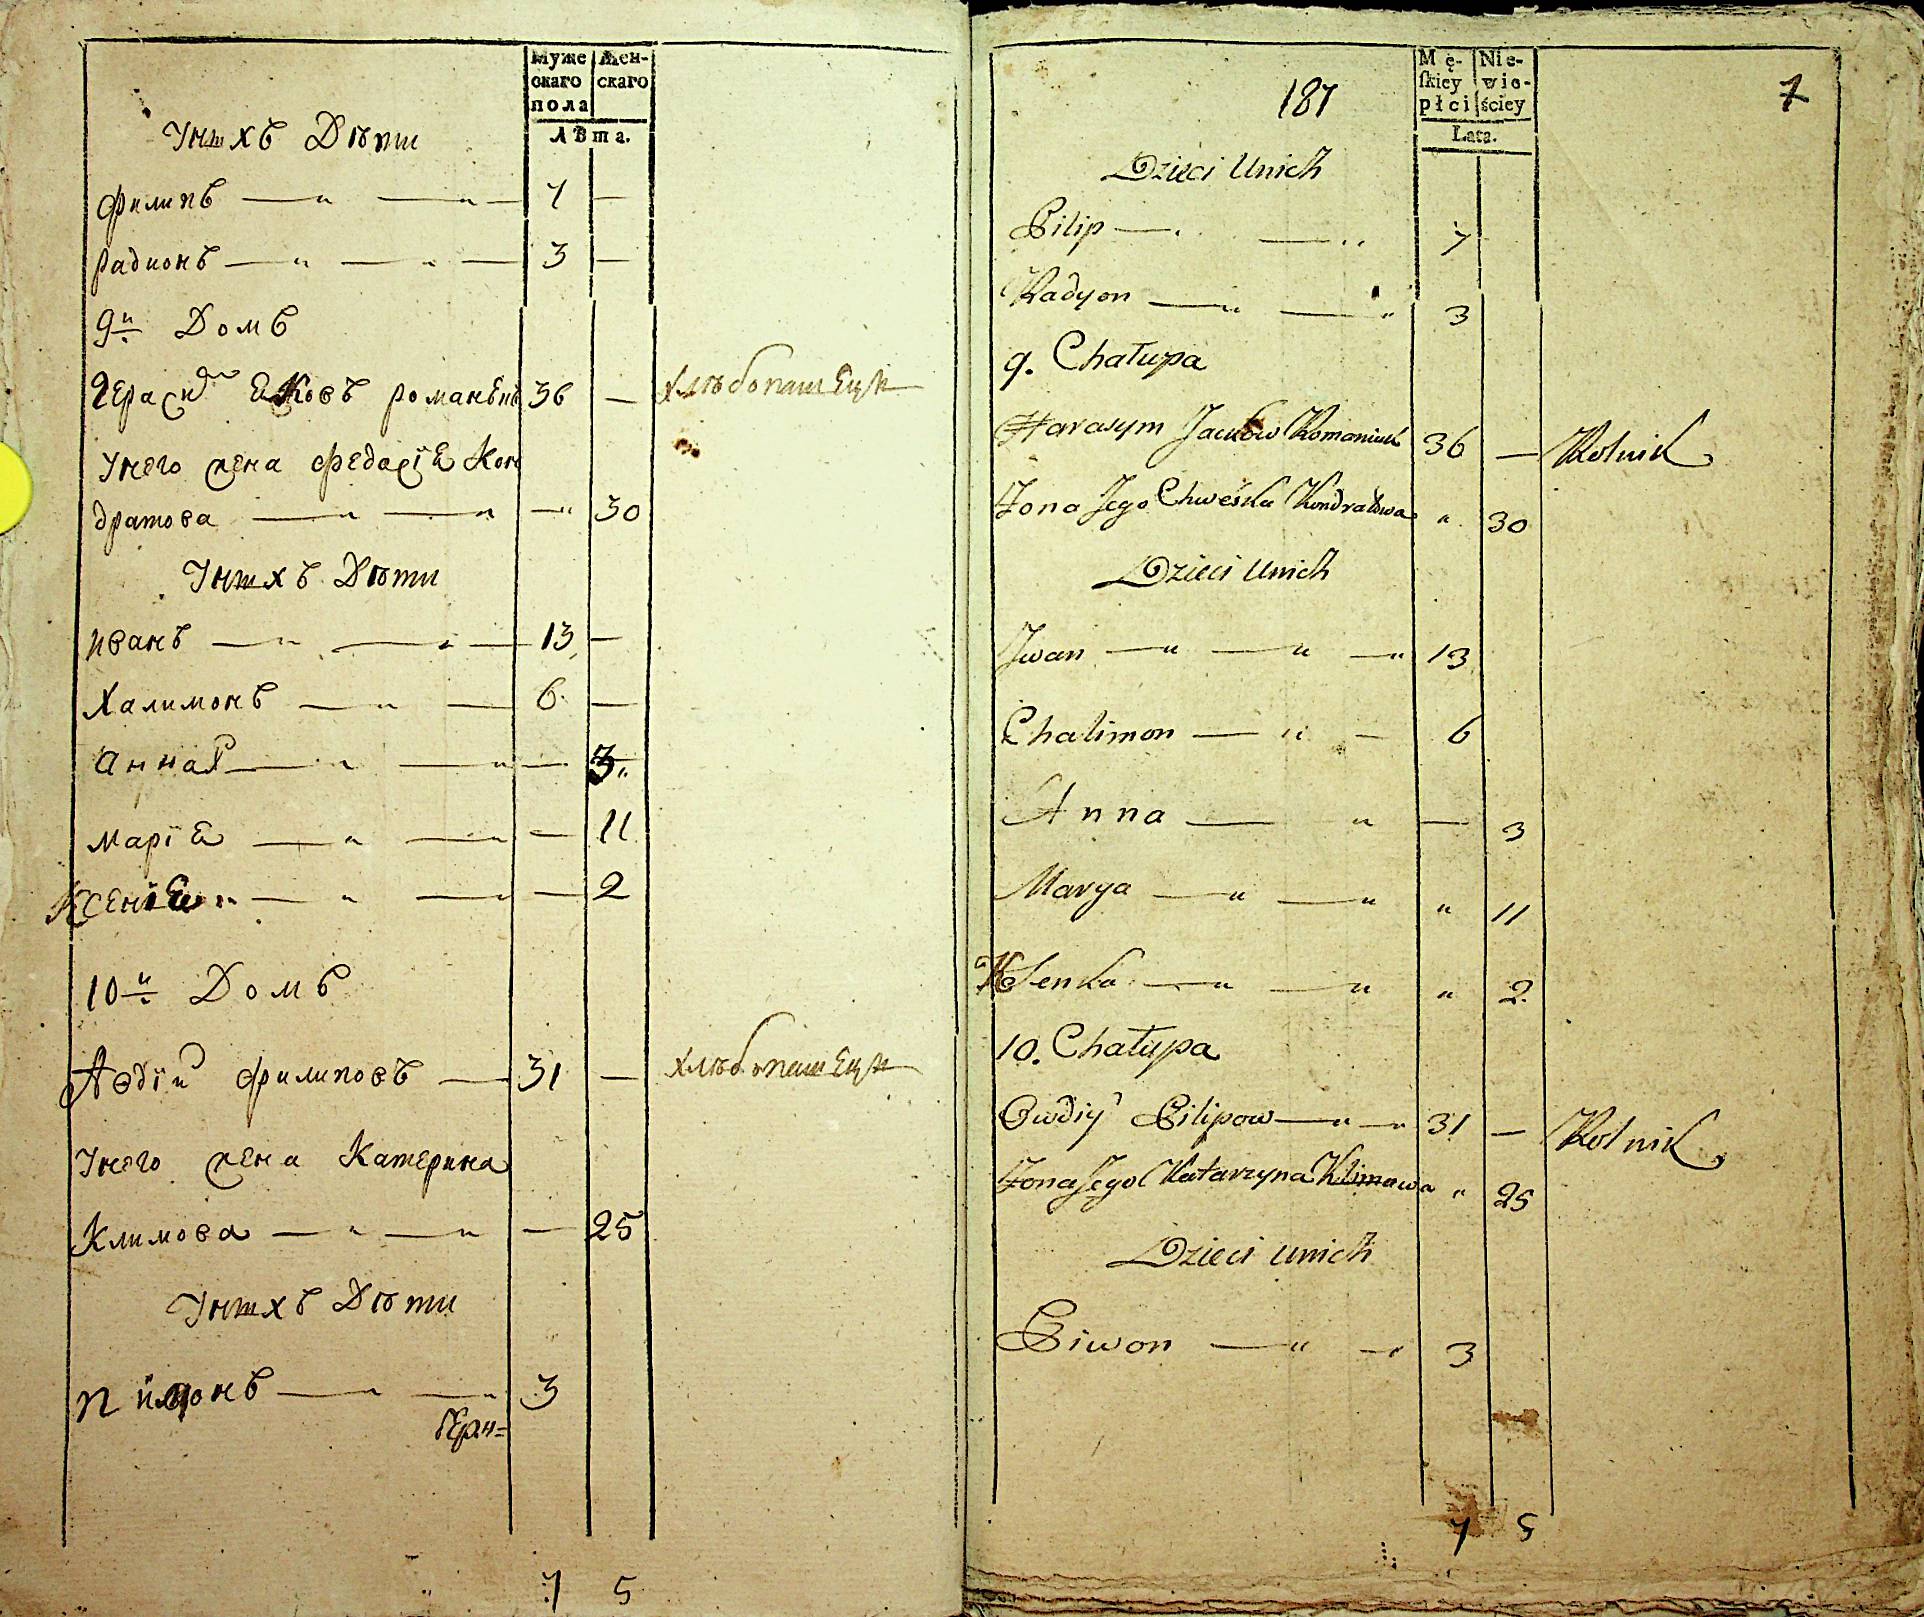 Муже
скаго
пола
Жен-
скаго
Лѣта.
Унихъ Дѣти
Филипъ — " — " — 7 —
Радионъ — " — " — 3 —
9й Домъ
Герасим Яковъ Романюкъ 36 — хлѣбопашецъ
Унего жена Федосіе Кон
дратова — " — " — " 30
Унихъ Дѣти
Иванъ — " — " — 13 —
Халимонъ — " — 6 —
Анна — " — " — 3
Маріе — " — " — 11
Ксеніе " — " — " — 2
10й Домъ
Авдій Филиповъ — 31 — хлѣбопашецъ
Унего жена Катерина
Климова — " — " — 25
Унихъ Дѣти
Пимонъ — " — " 3
7 5
187
7
Mę-
skiey
płci
Nie-
wie-
ściey
Lata.
Dzieci Unich
Pilip — " — " 7
Radyon — " — " 3
9. Chałupa
Harasym Jacków Romaniuk 36 — Rolnik
Żona Jego Chweśka Kondratowa " 30
Dzieci Unich
Jwan — " — " — " 13
Chalimon — " — 6
Anna — " — 3
Marya — " — " " 11
Ksenka — " — " " 2
10. Chałupa
Owdiy Pilipow — " — " 31 — Rolnik
Żona Jego Katarzyna Klimowa " 25
Dzieci unich
Piwon — " — " 3
7 5